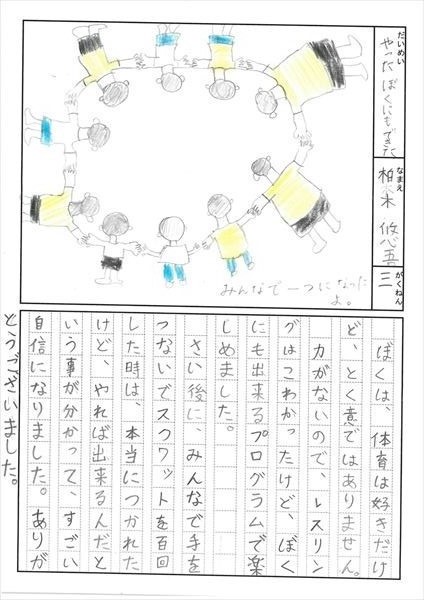 だいめい
やったぼくにもできた
なまえ
柏木 悠吾
がくねん
三
みんなで一つになった
よ。
ぼくは、体育は好きだけ
ど、とく意ではありません。
力がないので、レスリン
グはこわかったけど、ぼく
にも出来るプログラムで楽
しめました。
さい後に、みんなで手を
つないでスクワットを百回
した時は、本当につかれた
けど、やれば出来るんだと
いう事が分かって、すごい
自信になりました。ありが
とうございました。